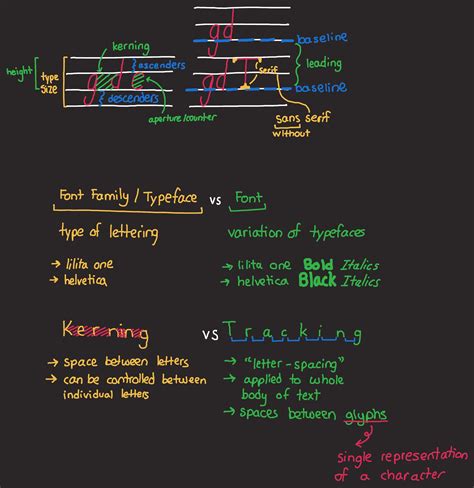 gd
baseline
kerning
height
type size
ascenders
gd
descenders
aperture/counter
gd T
serif
leading
baseline
sans serif
without
Font Family / Typeface vs Font
type of lettering
variation of typefaces
→ lilita one
→ helvetica
→ lilita one Bold Italics
→ helvetica Black Italics
Kerning vs Tracking
→ space between letters
→ can be controlled between
individual letters
→ "letter-spacing"
→ applied to whole
body of text
→ spaces between glyphs
single representation
of a character